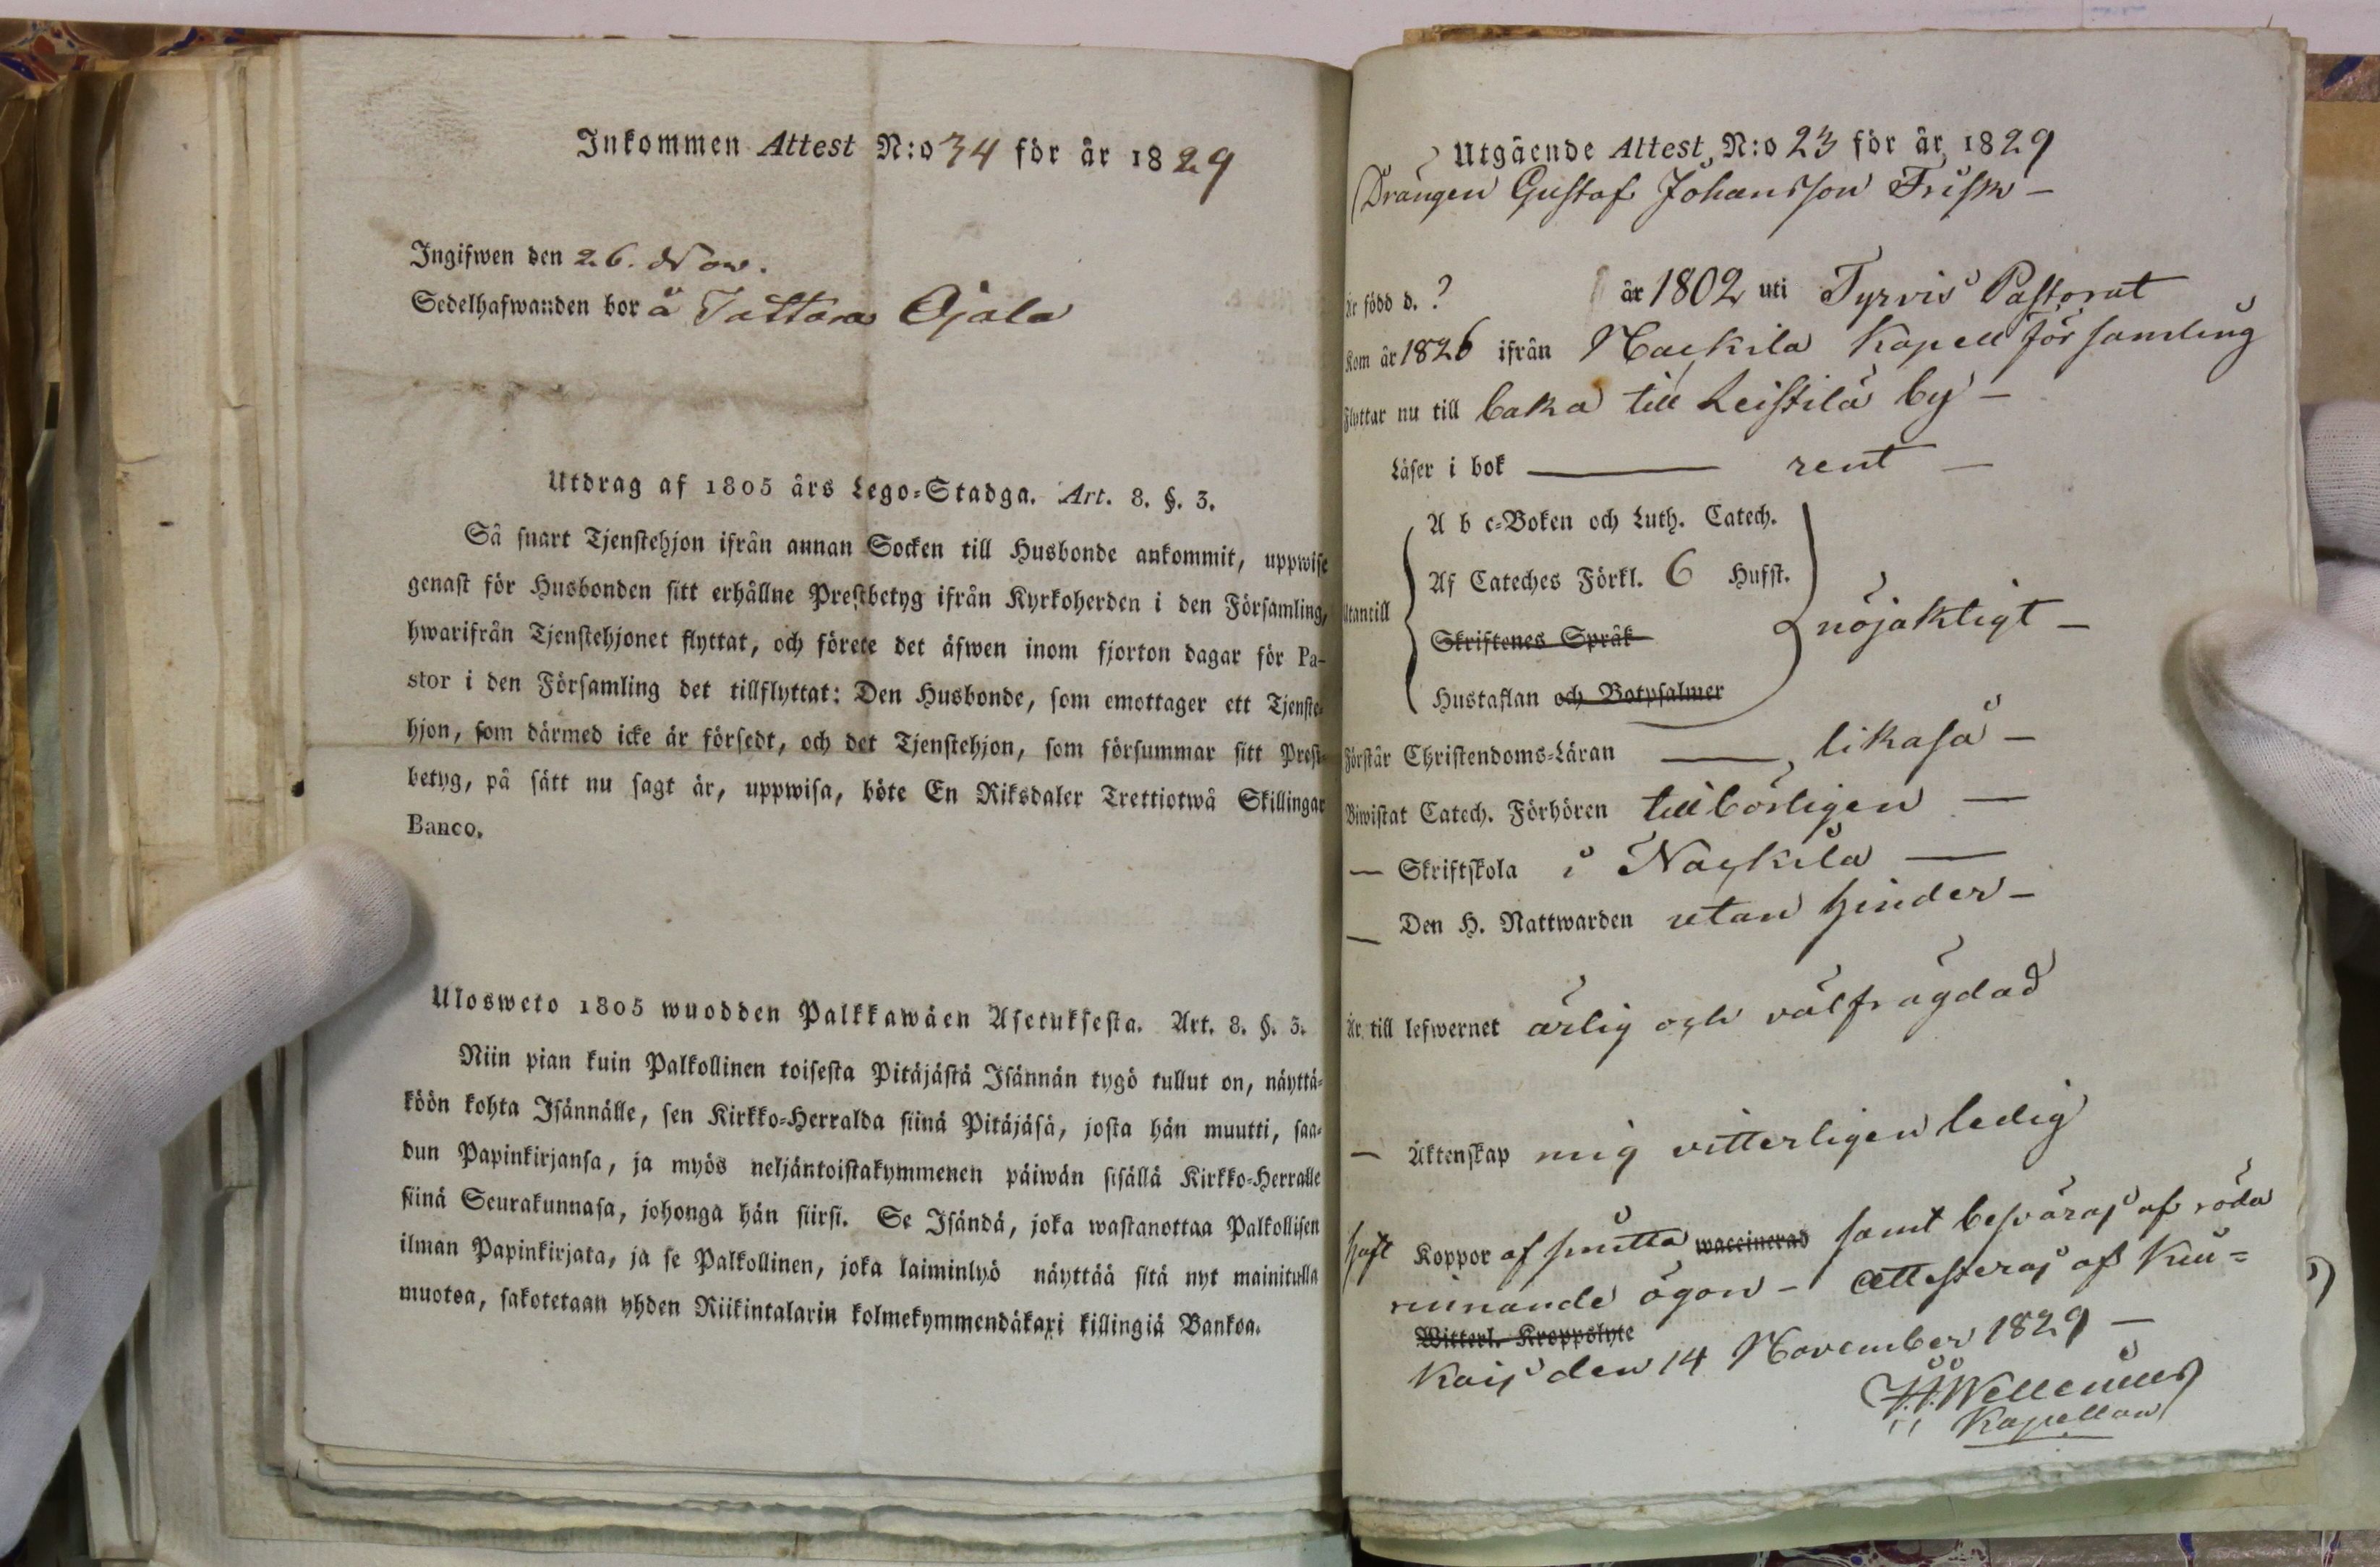 Inkommen Attest N:o 34 för år 1829
Ingifwen den 26. Nov.
Sedelhafwanden bor å Tattara Ojala
Utdrag af 1805 års Lego-Stadga. Art. 8. §. 3.
Så snart Tjenstehjon ifrån annan Socken till Husbonde ankommit, uppwise
genast för Husbonden sitt erhållne Prestbetyg ifrån Kyrkoherden i den Församling,
hwarifrån Tjenstehjonet flyttat, och förete det äfwen inom fjorton dagar för Pa-
stor i den Församling det tillflyttat: Den Husbonde, som emottager ett Tjenste-
hjon, som därmed icke är försedt, och det Tjenstehjon, som försummar sitt Prest-
betyg, på sätt nu sagt är, uppwisa, böte En Riksdaler Trettiotwå Skillingar
Banco.
Ulosweto 1805 wuodden Palkkawäen Asetuksesta. Art. 8. §. 3.
Niin pian kuin Palkollinen toisesta Pitäjästä Isännän tygö tullut on, näyttä-
köön kohta Isännälle, sen Kirkko-Herralda siinä Pitäjäsä, josta hän muutti, saa-
dun Papinkirjansa, ja myös neljäntoistakymmenen päiwän sisällä Kirkko-Herralle
siinä Seurakunnasa, johonga hän siirsi. Se Isändä, joka wastanottaa Palkollisen
ilman Papinkirjata, ja se Palkollinen, joka laiminlyö näyttää sitä nyt mainitulla
muotoa, sakotetaan yhden Riikintalarin kolmekymmendäkaxi killingiä Bankoa.
Utgående Attest N:o 23 för år 1829
Drängen Gustaf Johansson Frisk –
Är född d. ? år 1802 uti Tyrvis Pastorat
Kom år 1826 ifrån Nackila Kapell församling
Flyttar nu till baka till Leistilä by –
Läser i bok — rent –
A b c-Boken och Luth. Catech.
Af Cateches Förkl. 6 Hufst.
Utantill
nöjaktigt –
Skriftenes Språk
Hustaflan och Botpsalmer
Förstår Christendoms-Läran — likaså –
Biwistat Catech. Förhören tillbörligen —
— Skriftskola i Nackila —
— Den H. Nattwarden utan hinder –
Är till lefwernet ärlig och välfrägdad
— Äktenskap mig vitterligen ledig
haft Koppor af smitta waccinerad samt besväras af röda
rinnande ögon – Attesteras af Kiu=
Witterl. Kroppslyte
kais den 14 November 1829 –
Wellenius
Kapellan